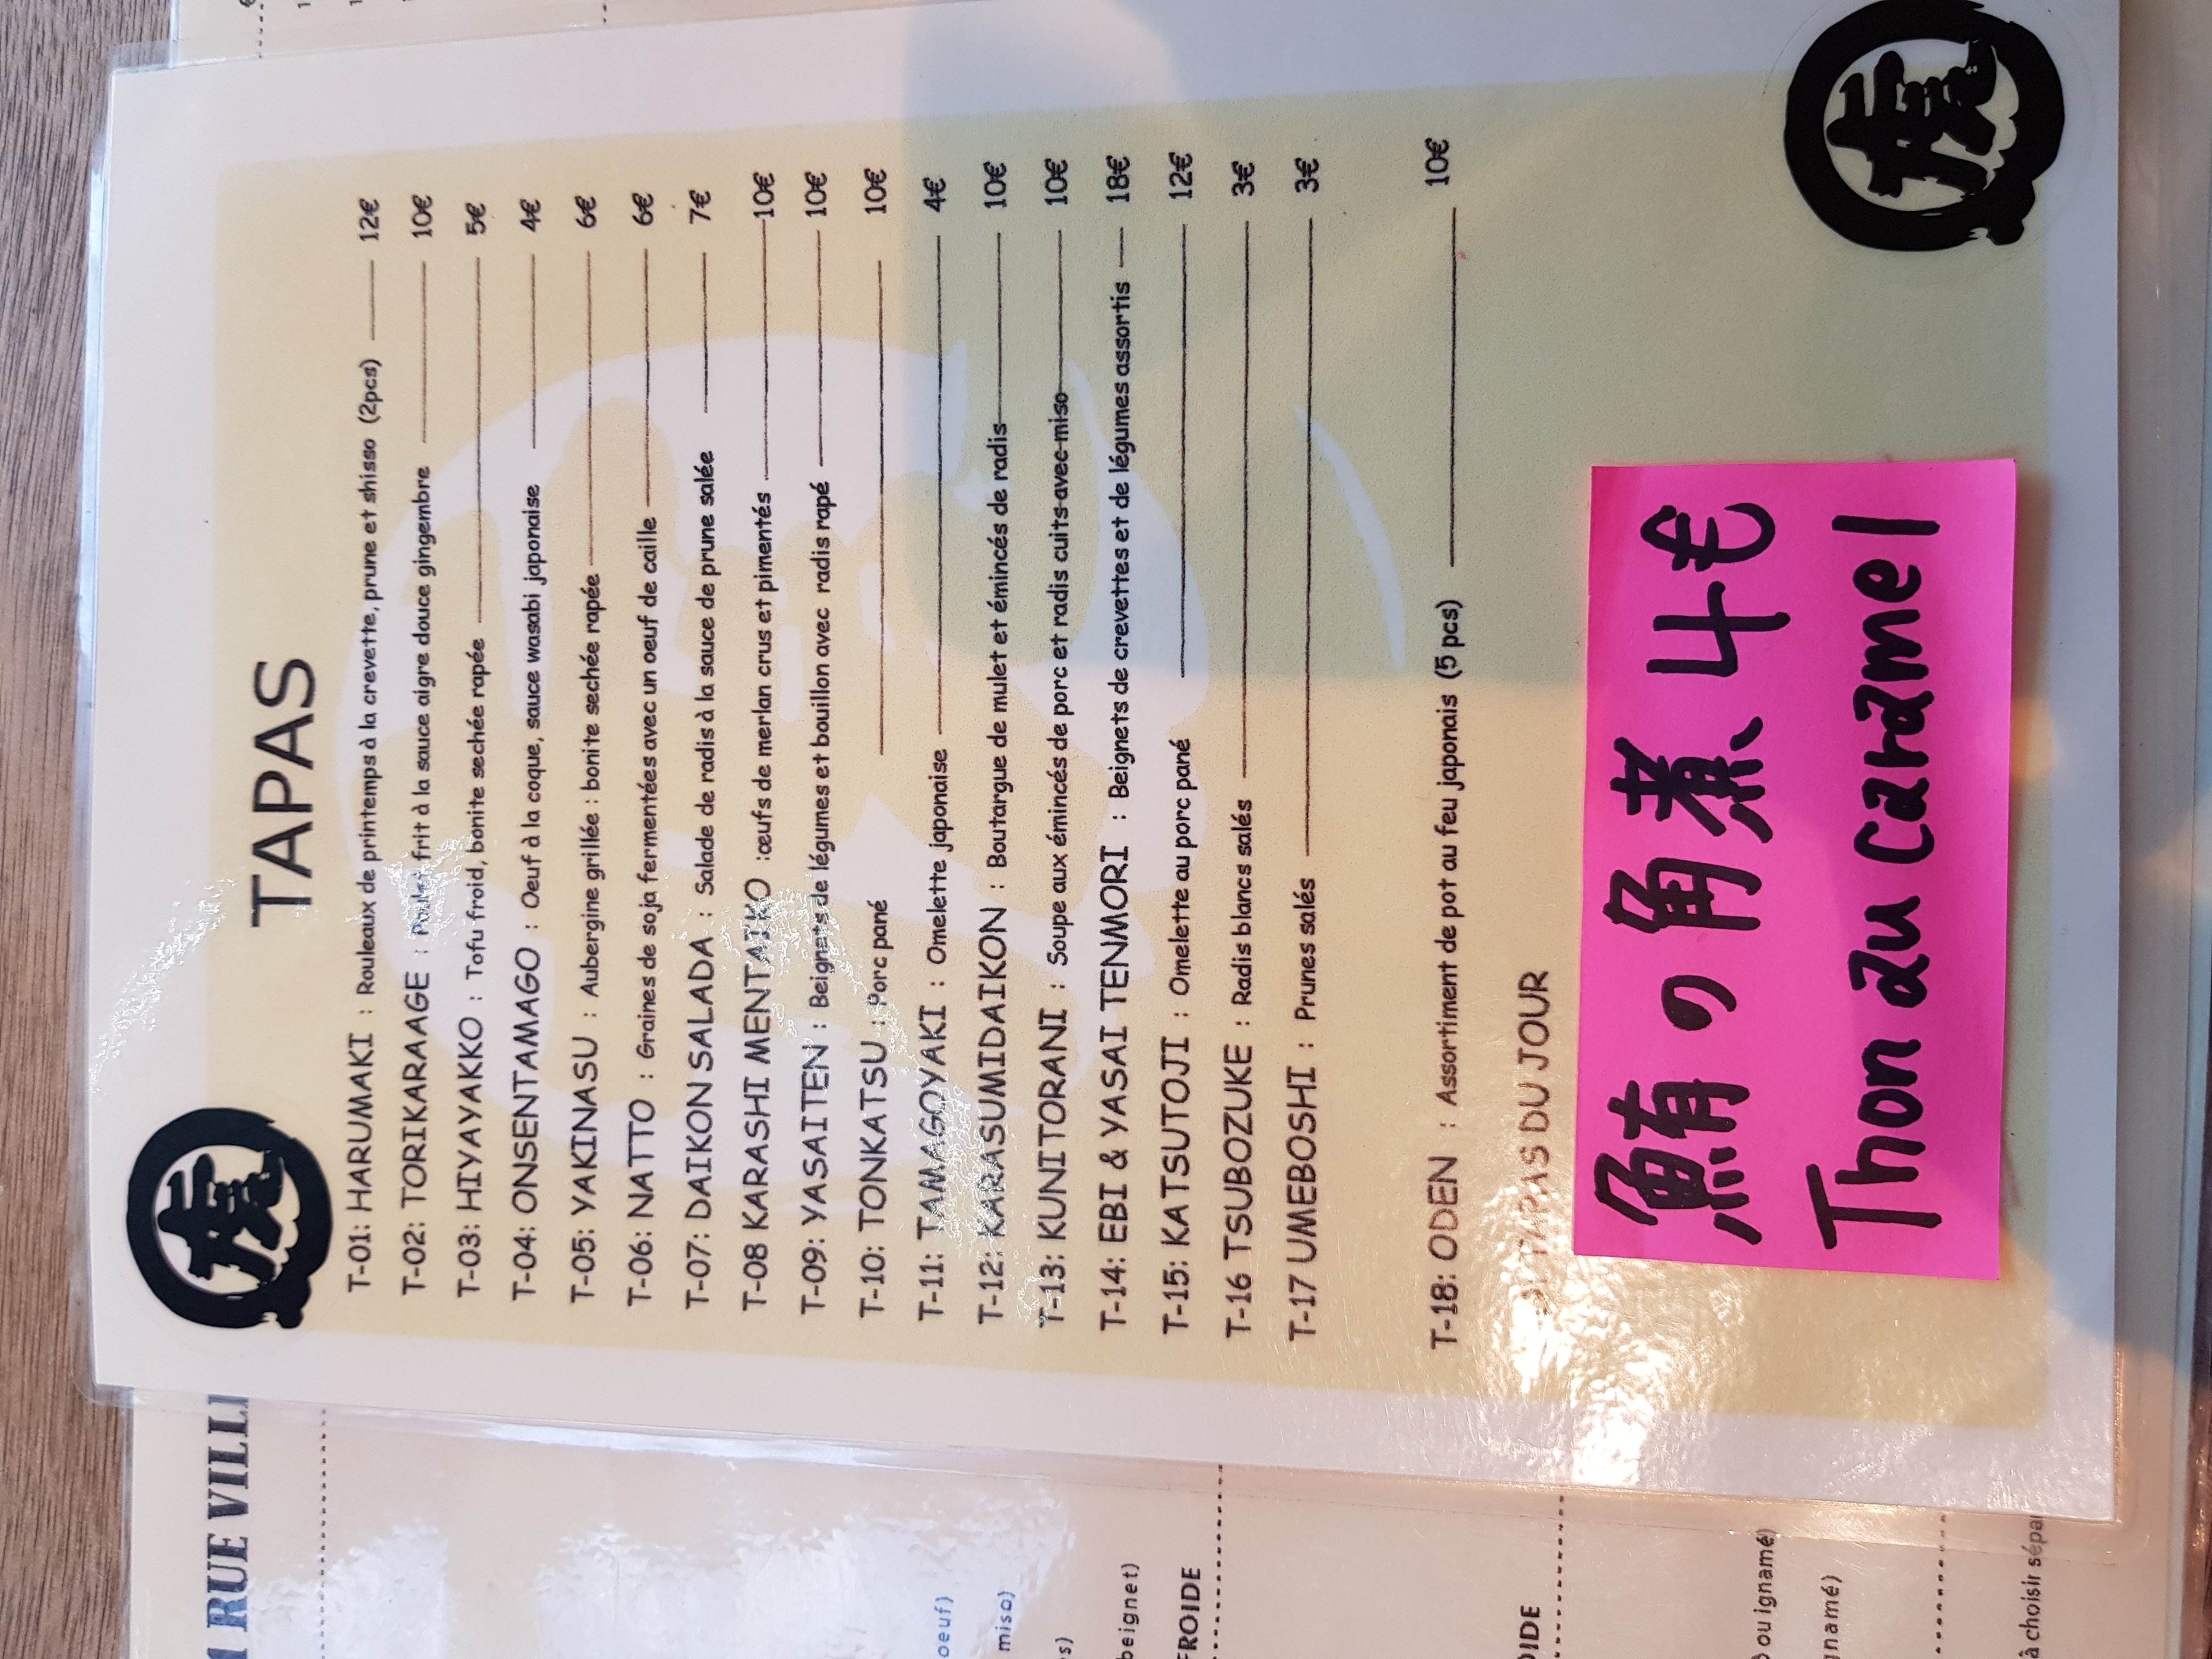 虎
TAPAS
T-01: HARUMAKI : Rouleaux de printemps à la crevette, prune et shisso (2pcs) 12€
T-02: TORIKARAAGE : Poulet frit à la sauce aigre douce gingembre 10€
T-03: HIYAYAKKO : Tofu froid, bonite sechée rapée 5€
T-04: ONSENTAMAGO : Oeuf à la coque, sauce wasabi japonaise 4€
T-05: YAKINASU : Aubergine grillée : bonite sechée rapée 6€
T-06: NATTO : Graines de soja fermentées avec un oeuf de caille 6€
T-07: DAIKON SALADA : Salade de radis à la sauce de prune salée 7€
T-08 KARASHI MENTAIKO :œufs de merlan crus et pimentés 10€
T-09: YASAITEN : Beignets de légumes et bouillon avec radis rapé 10€
T-10: TONKATSU : Porc pané 10€
T-11: TAMAGOYAKI : Omelette japonaise 4€
T-12: KARASUMIDAIKON : Boutargue de mulet et émincés de radis 10€
T-13: KUNITORANI : Soupe aux émincés de porc et radis cuits avec miso 10€
T-14: EBI & YASAI TENMORI : Beignets de crevettes et de légumes assortis 18€
T-15: KATSUTOJI : Omelette au porc pané 12€
T-16 TSUBOZUKE : Radis blancs salés 3€
T-17 UMEBOSHI : Prunes salés 3€
T-18: ODEN : Assortiment de pot au feu japonais (5 pcs) 10€
TAPAS DU JOUR
鮪の角煮 4€
Thon au caramel
虎
1 RUE VILL
oeuf)
miso)
s)
beignet)
FROIDE
IDE
ou ignamé)
gnamé)
à choisir sépa